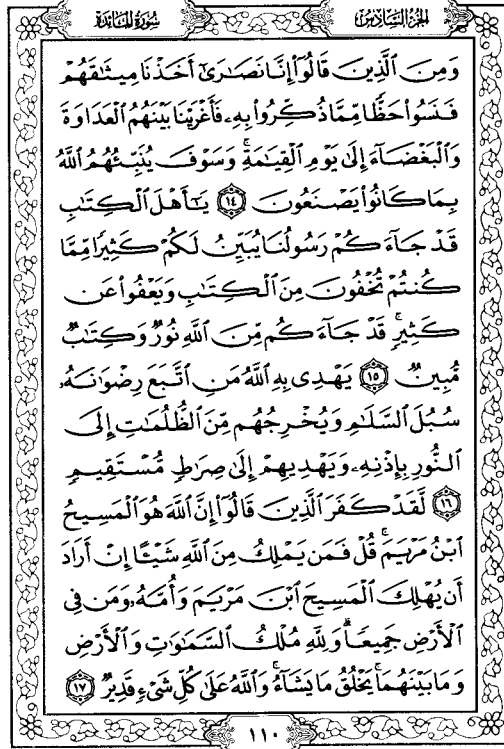 سُورَةُ المَائِدَةِ
الجُزْءُ السَّادِسُ
وَمِنَ ٱلَّذِينَ قَالُوٓا۟ إِنَّا نَصَـٰرَىٰٓ أَخَذْنَا مِيثَـٰقَهُمْ
فَنَسُوا۟ حَظًّا مِّمَّا ذُكِّرُوا۟ بِهِۦ فَأَغْرَيْنَا بَيْنَهُمُ ٱلْعَدَاوَةَ
وَٱلْبَغْضَآءَ إِلَىٰ يَوْمِ ٱلْقِيَـٰمَةِ ۚ وَسَوْفَ يُنَبِّئُهُمُ ٱللَّهُ
بِمَا كَانُوا۟ يَصْنَعُونَ ١٤ يَـٰٓأَهْلَ ٱلْكِتَـٰبِ
قَدْ جَآءَكُمْ رَسُولُنَا يُبَيِّنُ لَكُمْ كَثِيرًا مِّمَّا
كُنتُمْ تُخْفُونَ مِنَ ٱلْكِتَـٰبِ وَيَعْفُوا۟ عَن
كَثِيرٍ ۚ قَدْ جَآءَكُم مِّنَ ٱللَّهِ نُورٌ وَكِتَـٰبٌ
مُّبِينٌ ١٥ يَهْدِى بِهِ ٱللَّهُ مَنِ ٱتَّبَعَ رِضْوَٰنَهُۥ
سُبُلَ ٱلسَّلَـٰمِ وَيُخْرِجُهُم مِّنَ ٱلظُّلُمَـٰتِ إِلَى
ٱلنُّورِ بِإِذْنِهِۦ وَيَهْدِيهِمْ إِلَىٰ صِرَٰطٍ مُّسْتَقِيمٍ
١٦ لَّقَدْ كَفَرَ ٱلَّذِينَ قَالُوٓا۟ إِنَّ ٱللَّهَ هُوَ ٱلْمَسِيحُ
ٱبْنُ مَرْيَمَ ۚ قُلْ فَمَن يَمْلِكُ مِنَ ٱللَّهِ شَيْـًٔا إِنْ أَرَادَ
أَن يُهْلِكَ ٱلْمَسِيحَ ٱبْنَ مَرْيَمَ وَأُمَّهُۥ وَمَن فِى
ٱلْأَرْضِ جَمِيعًا ۗ وَلِلَّهِ مُلْكُ ٱلسَّمَـٰوَٰتِ وَٱلْأَرْضِ
وَمَا بَيْنَهُمَا ۚ يَخْلُقُ مَا يَشَآءُ ۚ وَٱللَّهُ عَلَىٰ كُلِّ شَىْءٍ قَدِيرٌ ١٧
١١٠